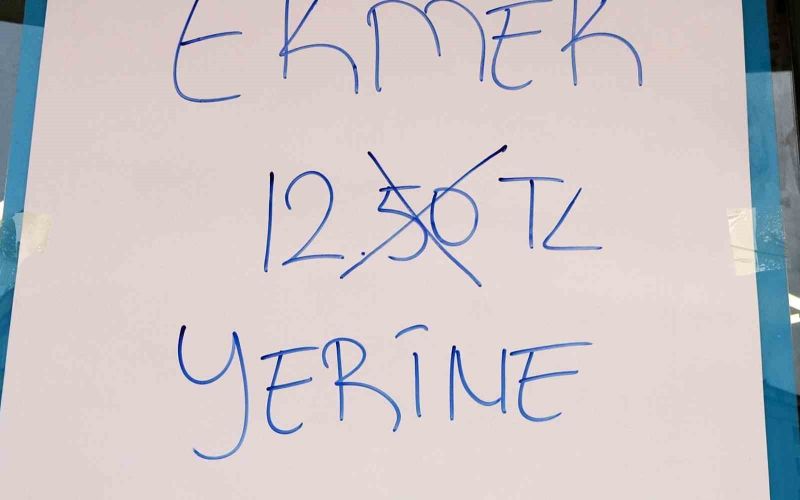 EKMEK
12.50 TL
YERİNE